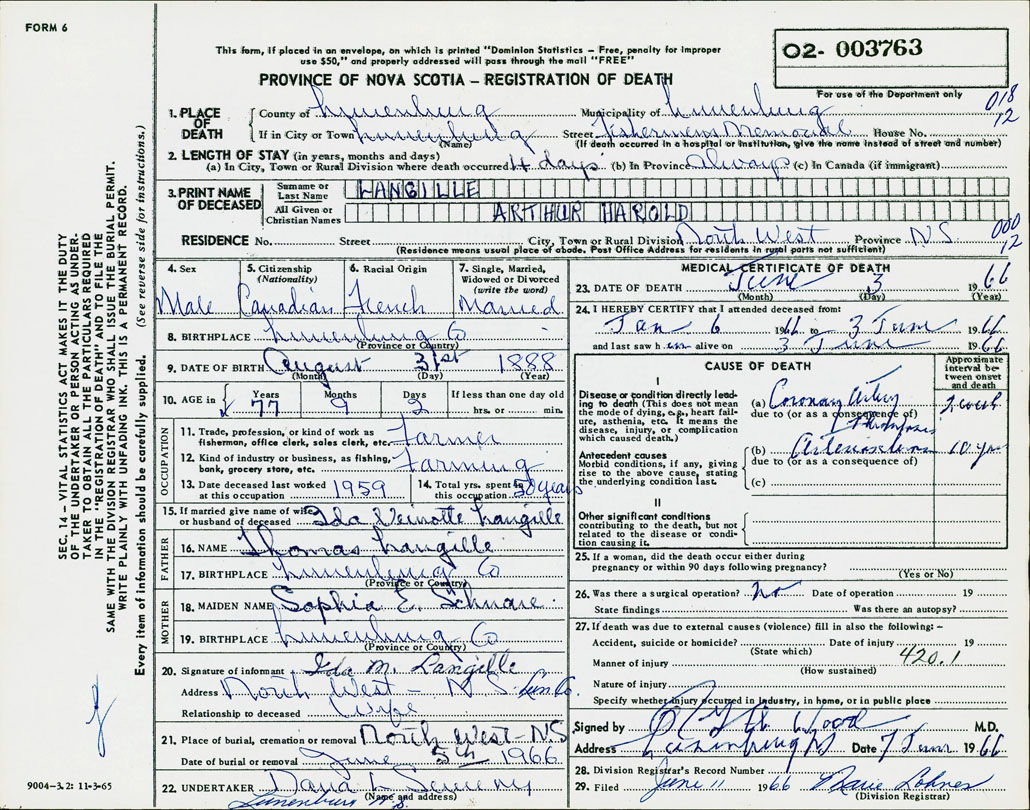 FORM 6
This form, if placed in an envelope, on which is printed "Dominion Statistics – Free, penalty for improper
use $50," and properly addressed will pass through the mail "FREE"
PROVINCE OF NOVA SCOTIA – REGISTRATION OF DEATH
02- 003763
For use of the Department only
018
12
1. PLACE OF DEATH
County of Lunenburg Municipality of Lunenburg
If in City or Town Lunenburg Street Fishermens Memorial House No.
(Name) (If death occurred in a hospital or institution, give the name instead of street and number)
2. LENGTH OF STAY (in years, months and days)
(a) In City, Town or Rural Division where death occurred 4 days (b) In Province always (c) In Canada (if immigrant)
3. PRINT NAME OF DECEASED
Surname or Last Name LANGILLE
All Given or Christian Names ARTHUR HAROLD
000
12
RESIDENCE No. Street City, Town or Rural Division North West Province NS
(Residence means usual place of abode. Post Office Address for residents in rural parts not sufficient)
4. Sex Male
5. Citizenship (Nationality) Canadian
6. Racial Origin French
7. Single, Married, Widowed or Divorced (write the word) Married
8. BIRTHPLACE Lunenburg Co
(Province or Country)
9. DATE OF BIRTH August 31st 1888
(Month) (Day) (Year)
10. AGE in Years 77 Months 9 Days 2 If less than one day old hrs. or min.
OCCUPATION
11. Trade, profession, or kind of work as fisherman, office clerk, sales clerk, etc. Farmer
12. Kind of industry or business, as fishing, bank, grocery store, etc. Farming
13. Date deceased last worked at this occupation 1959
14. Total yrs. spent in this occupation 50 years
15. If married give name of wife or husband of deceased Ida Veinotte Langille
FATHER
16. NAME Thomas Langille
17. BIRTHPLACE Lunenburg Co
(Province or Country)
MOTHER
18. MAIDEN NAME Sophia E. Schnare
19. BIRTHPLACE Lunenburg Co
(Province or Country)
20. Signature of informant Ida M. Langille
Address North West – N S Lun. Co.
Relationship to deceased Wife
21. Place of burial, cremation or removal North West – NS
Date of burial or removal June 5th 1966
22. UNDERTAKER Dana L Sweeny
(Name and address)
Lunenburg N.S.
MEDICAL CERTIFICATE OF DEATH
23. DATE OF DEATH June 3 1966
(Month) (Day) (Year)
24. I HEREBY CERTIFY that I attended deceased from:
Jan 6 1966 to 3 June 1966
and last saw him alive on 3 June 1966
CAUSE OF DEATH
Approximate interval between onset and death
I
Disease or condition directly leading to death (This does not mean the mode of dying, e.g., heart failure, asthenia, etc. It means the disease, injury, or complication which caused death.)
(a) Coronary Artery Thrombosis
due to (or as a consequence of)
Antecedent causes
Morbid conditions, if any, giving rise to the above cause, stating the underlying condition last.
(b) Arteriosclerosis 10 yrs
due to (or as a consequence of)
(c)
II
Other significant conditions contributing to the death, but not related to the disease or condition causing it.
25. If a woman, did the death occur either during
pregnancy or within 90 days following pregnancy?
(Yes or No)
26. Was there a surgical operation? No Date of operation 19
State findings Was there an autopsy?
27. If death was due to external causes (violence) fill in also the following: –
Accident, suicide or homicide? Date of injury 19
(State which)
Manner of injury 420.1
(How sustained)
Nature of injury
Specify whether injury occurred in industry, in home, or in public place
Signed by Wood M.D.
Address Lunenburg NS Date 7 June 1966
28. Division Registrar's Record Number
29. Filed June 11 1966 Marie Lohnes
(Division Registrar)
SEC. 14 – VITAL STATISTICS ACT MAKES IT THE DUTY
OF THE UNDERTAKER OR PERSON ACTING AS UNDER-
TAKER TO OBTAIN ALL THE PARTICULARS REQUIRED
IN THE "REGISTRATION OF DEATH" AND TO FILE THE
SAME WITH THE DIVISION REGISTRAR WHO SHALL ISSUE THE BURIAL PERMIT.
WRITE PLAINLY WITH UNFADING INK. THIS IS A PERMANENT RECORD.
Every item of information should be carefully supplied. (See reverse side for instructions.)
9004-3.2: 11-3-65